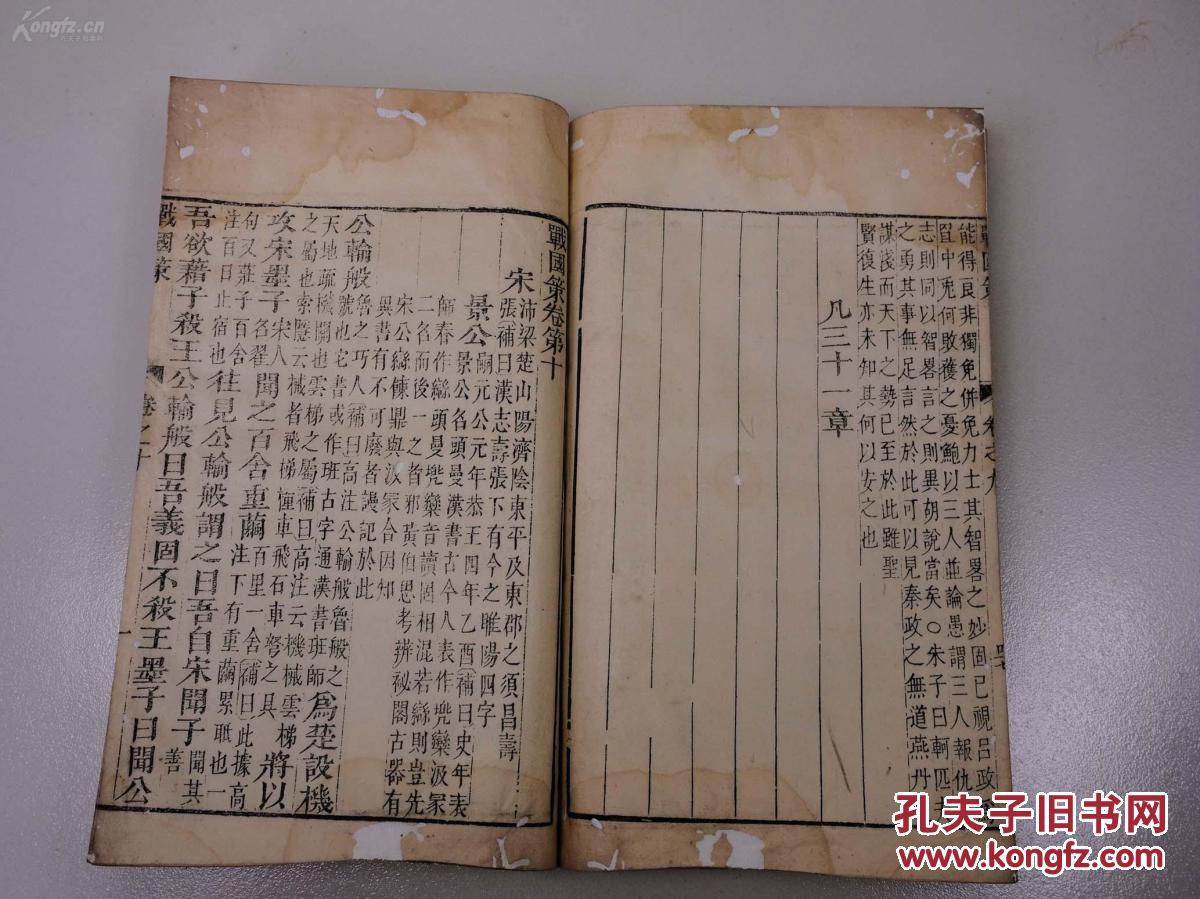 Kongfz.cn
孔夫子旧书网
能得良非獨免併免力士其智畧之妙固已視呂政
罝中兎何敗獲之憂鮑以三人並論愚謂三人報仇
志則同以智畧言之則異胡說當矣○朱子曰軻匹夫
之勇其事無足言然於此可以見秦政之無道燕丹
謀淺而天下之勢已至於此雖聖
賢復生亦未知其何以安之也
凡三十一章
卷之九
戰國策卷第十
宋
沛梁楚山陽濟陰東平及東郡之須昌壽
張補曰漢志壽張下有今之睢陽四字
景公
嗣元公元年恭王四年乙酉補曰史年表
景公名頭曼漢書古今人表作兠欒汲冢
師春作緣頭曼兠欒音讀固相混若緣則豈先
二名而後一之者邪黃伯思考辨祕閣古器有
宋公緣餗鼎與汲冢合因知
異書有不可廢者謾記於此
公輸般
魯之巧人補曰高注公輸般魯般之
號也宅書或作班古字通漢書班師
爲楚設機
天地疏機關也雲梯之屬補曰高注云機械雲梯
之屬也索隱云械者飛梯憧車飛石車弩之具
將以
攻宋墨子
宋人
名翟
聞之百舍重繭
百里一舍補曰此據高
注下有重繭累胝也一
句又莊子百舍
注百日止宿也
往見公輸般謂之曰吾自宋聞子
聞其
善
吾欲藉子殺王公輸般曰吾義固不殺王墨子曰聞公
戰國策
卷之十
一
孔夫子旧书网
www.kongfz.com